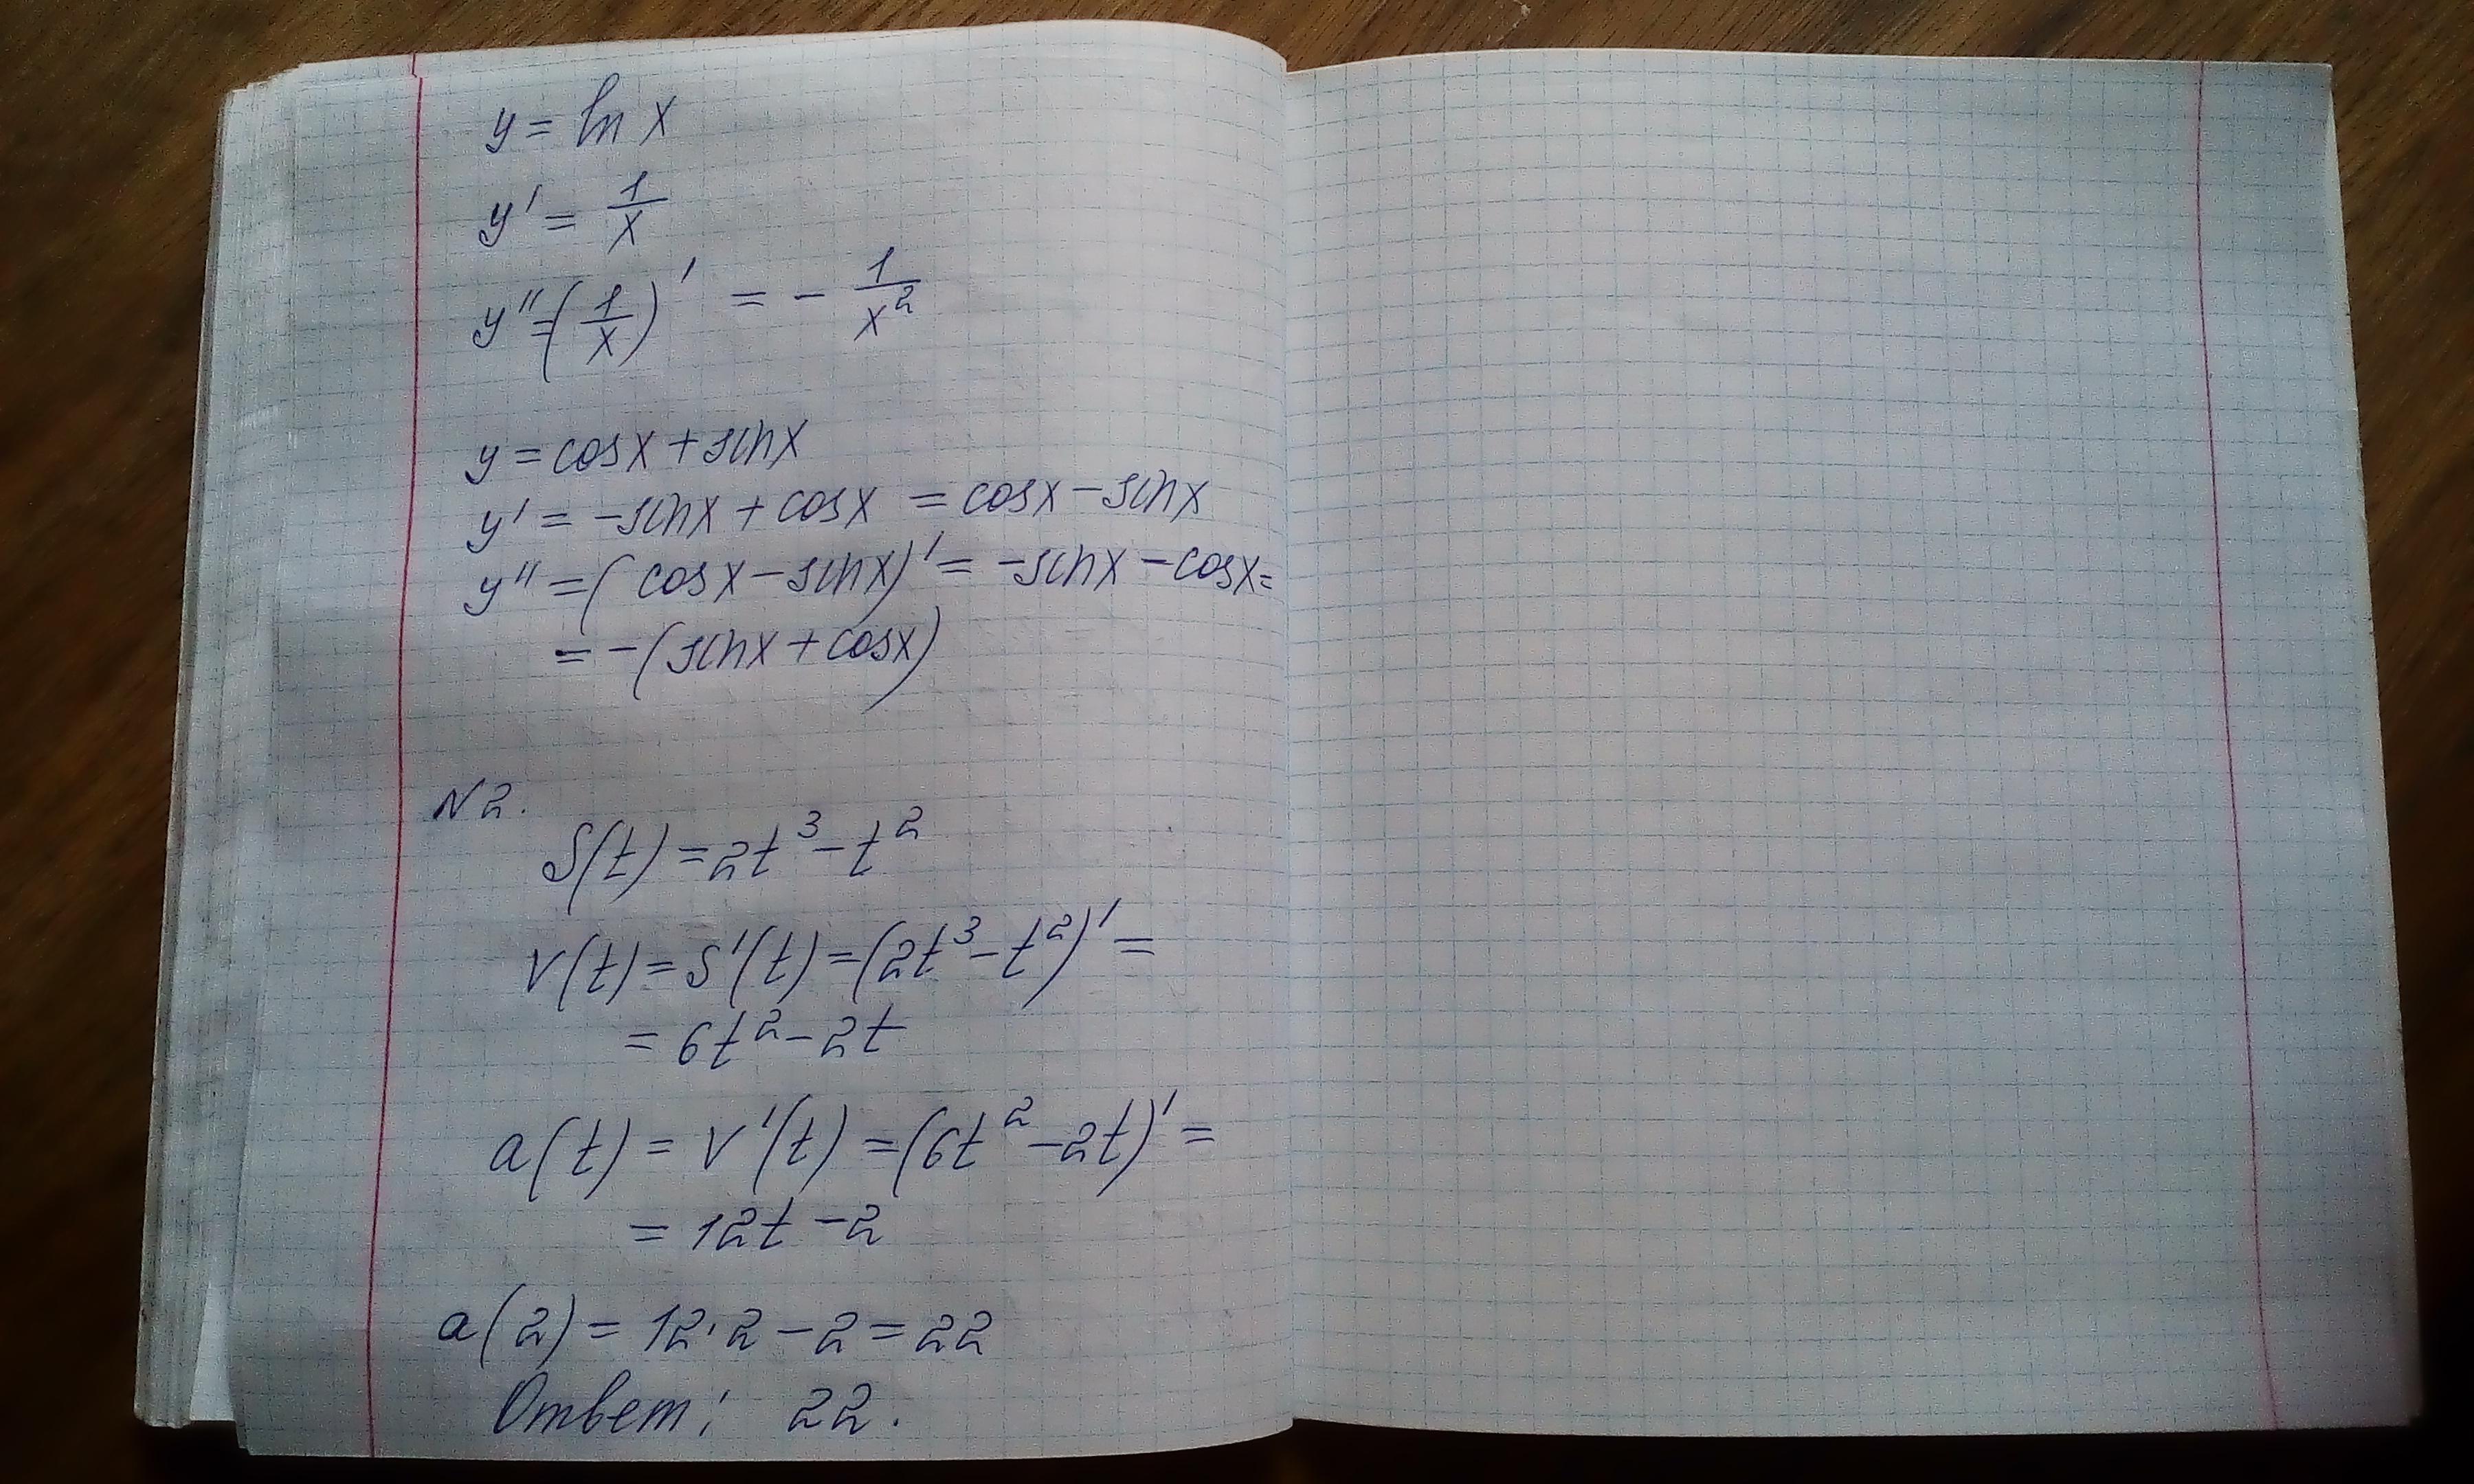 y = ln x
y' = 1/x
y'' = (1/x)' = - 1/x²
y = cosx + sinx
y' = -sinx + cosx = cosx - sinx
y'' = (cosx - sinx)' = -sinx - cosx =
= -(sinx + cosx)
N2.
S(t) = 2t³ - t²
V(t) = S'(t) = (2t³ - t²)' =
= 6t² - 2t
a(t) = V'(t) = (6t² - 2t)' =
= 12t - 2
a(2) = 12·2 - 2 = 22
Ответ: 22.